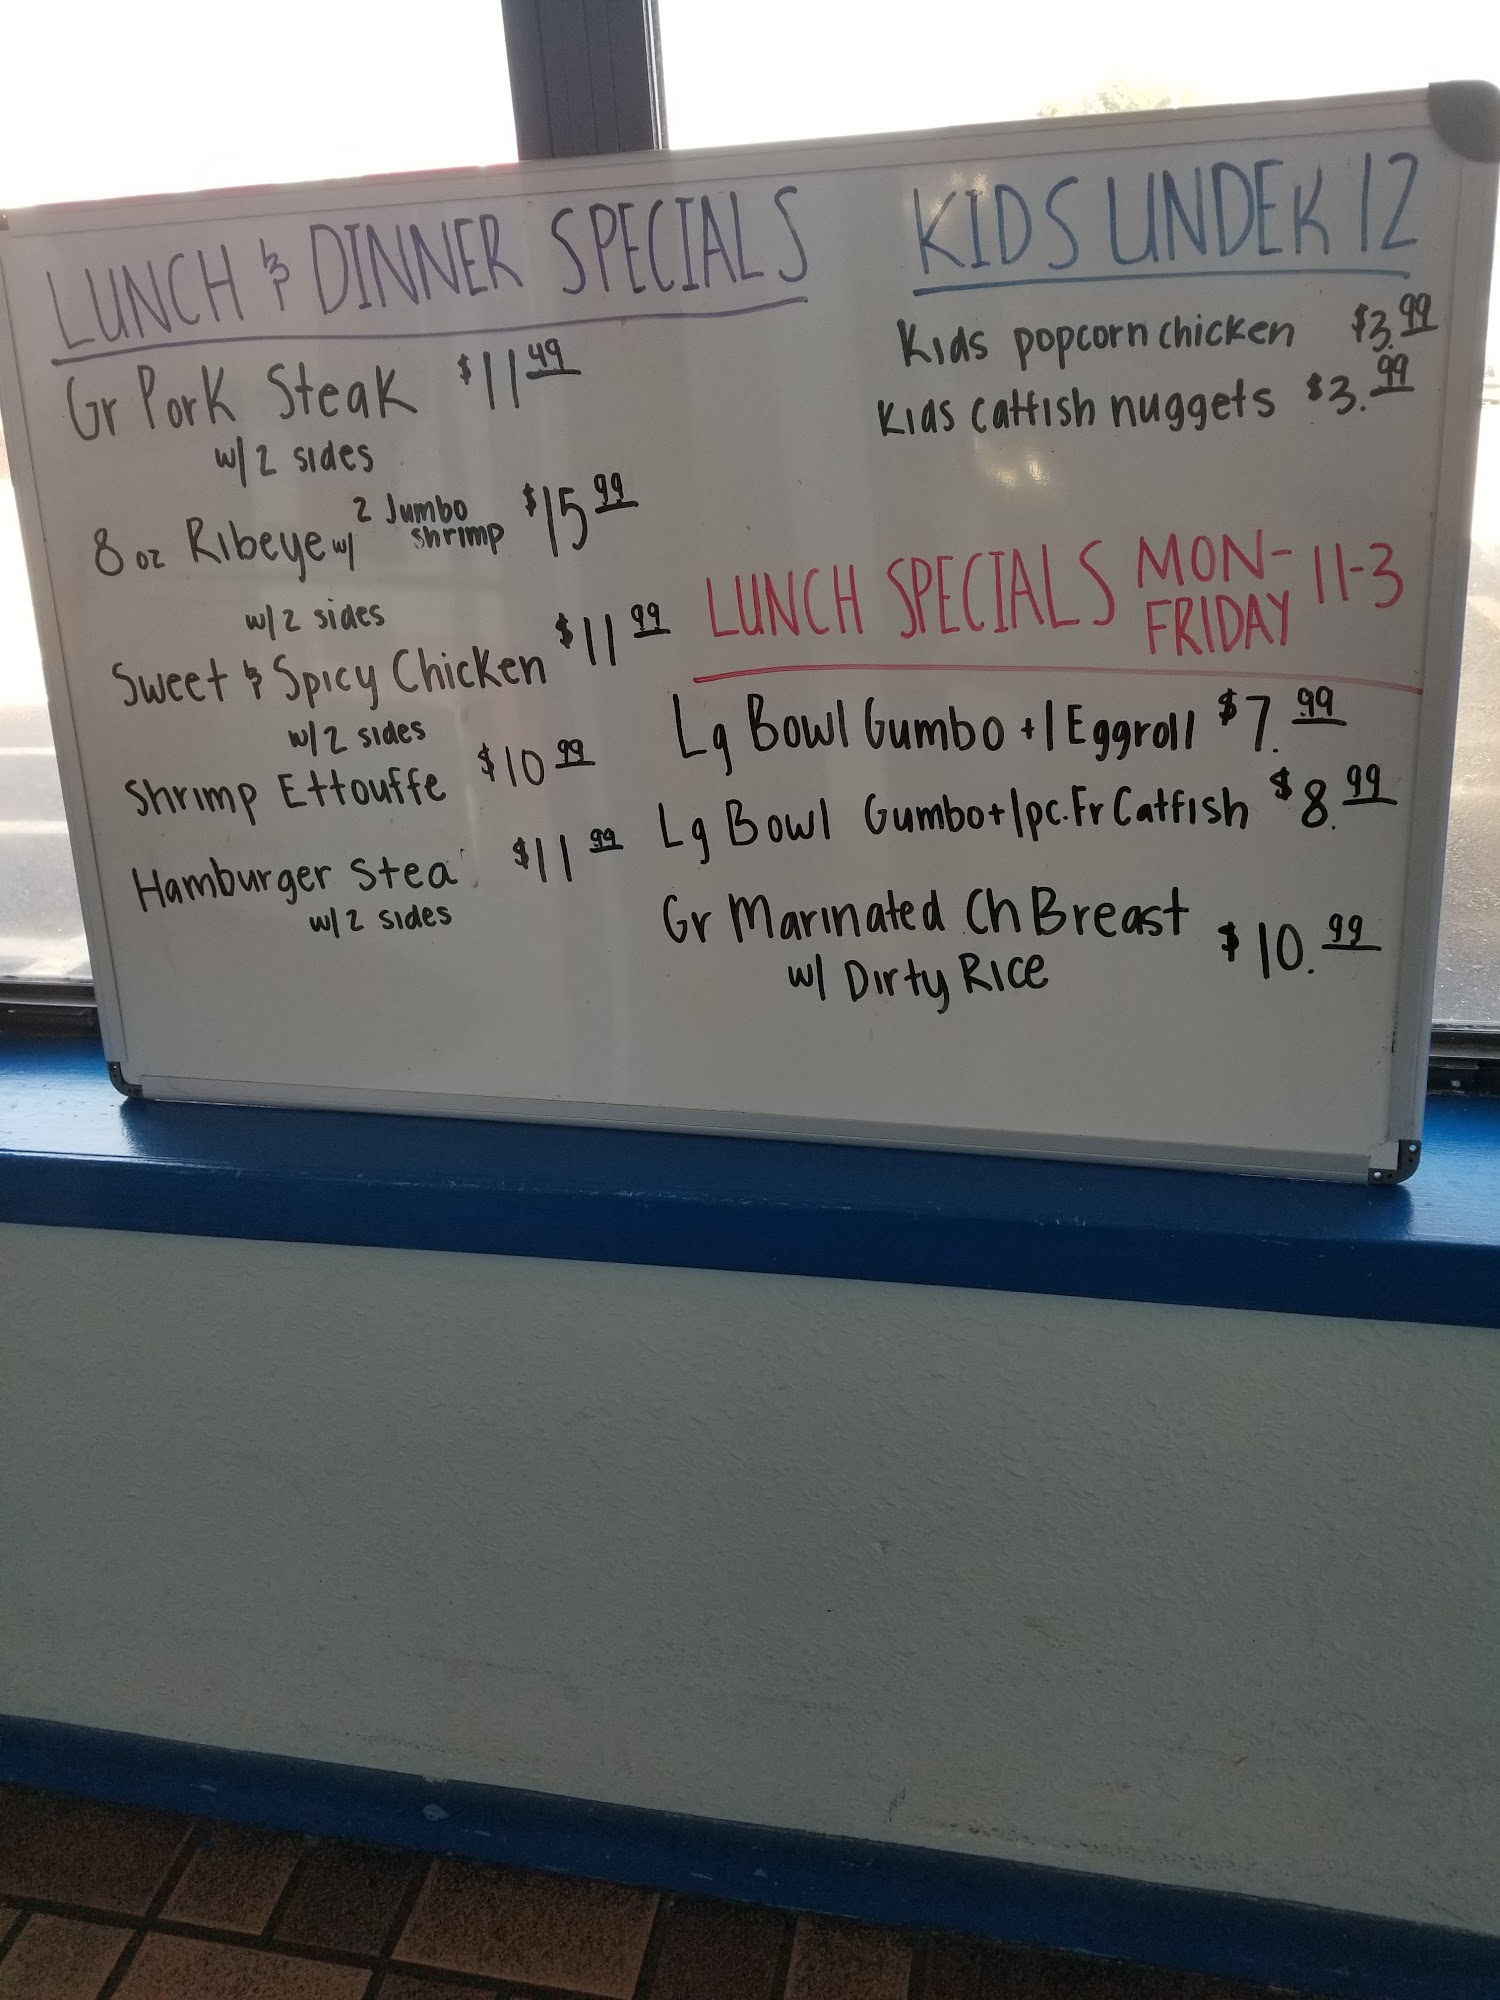 LUNCH & DINNER SPECIALS
Gr Pork Steak $11.49
w/2 sides
8 oz Ribeye w/ 2 Jumbo shrimp $15.99
w/2 sides
Sweet & Spicy Chicken $11.99
w/2 sides
Shrimp Ettouffe $10.99
Hamburger Stea $11.99
w/2 sides
KIDS UNDER 12
Kids popcorn chicken $3.99
Kids catfish nuggets $3.99
LUNCH SPECIALS MON-FRIDAY 11-3
Lg Bowl Gumbo + 1 Eggroll $7.99
Lg Bowl Gumbo + 1pc. Fr Catfish $8.99
Gr Marinated Ch Breast $10.99
w/ Dirty Rice